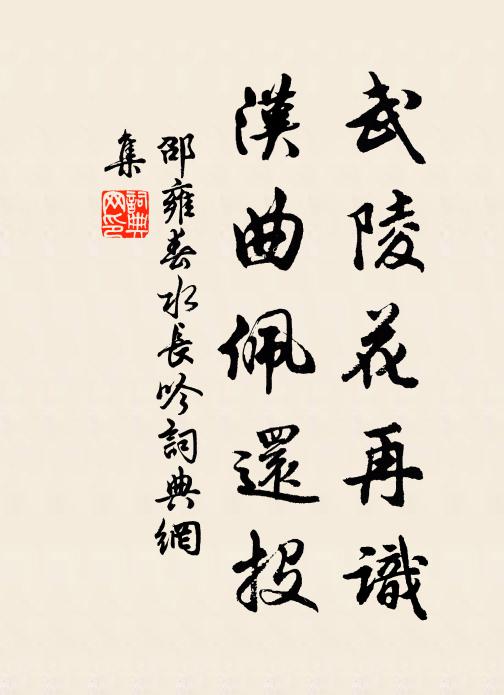 武陵花再識
漢曲佩還投
邵雍春水長吟詞典網
集
詞典
网印